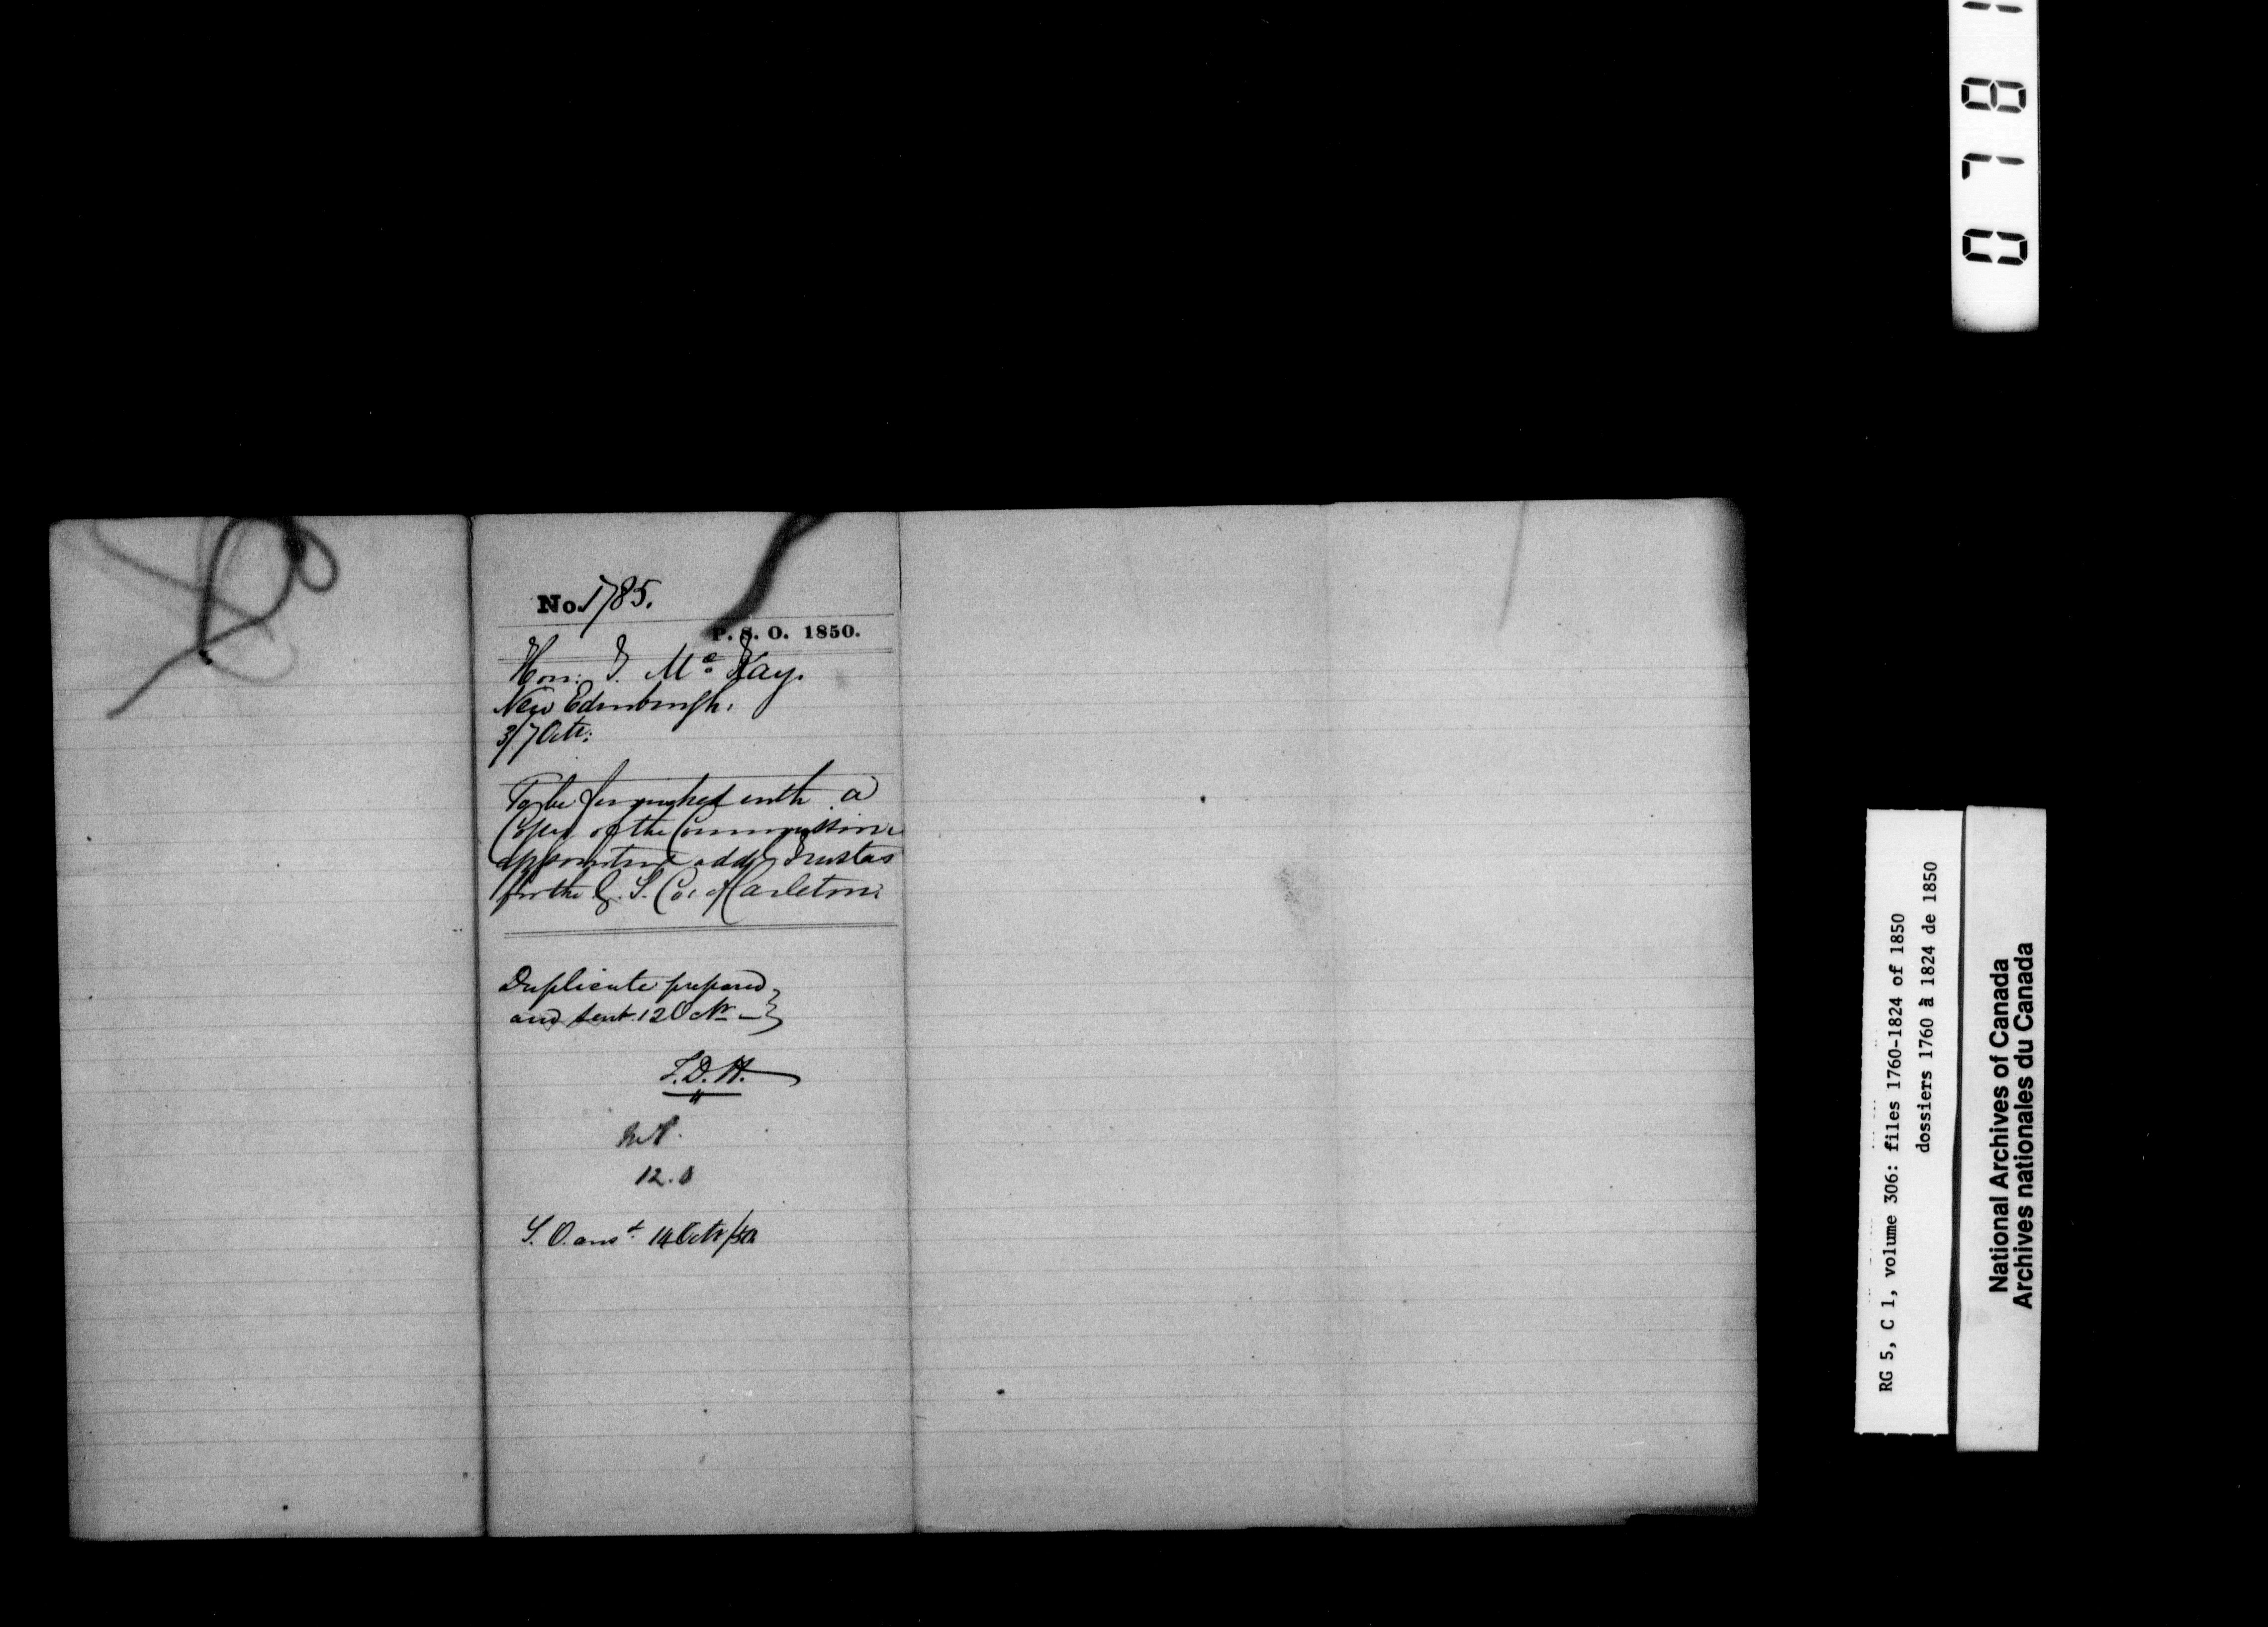 No. 1785.
P. S. O. 1850.
Hon: T. Mc Kay.
New Edinburgh.
3/7 Octr:
To be furnished with a
Copy of the Commission
appointing addl Trustees
for the G. S. Co: of Carleton.
Duplicate prepared
and sent. 12 Octr —
12.0
S. O. ansd. 14 Octr/50
0781
RG 5, C 1, volume 306: files 1760-1824 of 1850
dossiers 1760 à 1824 de 1850
National Archives of Canada
Archives nationales du Canada